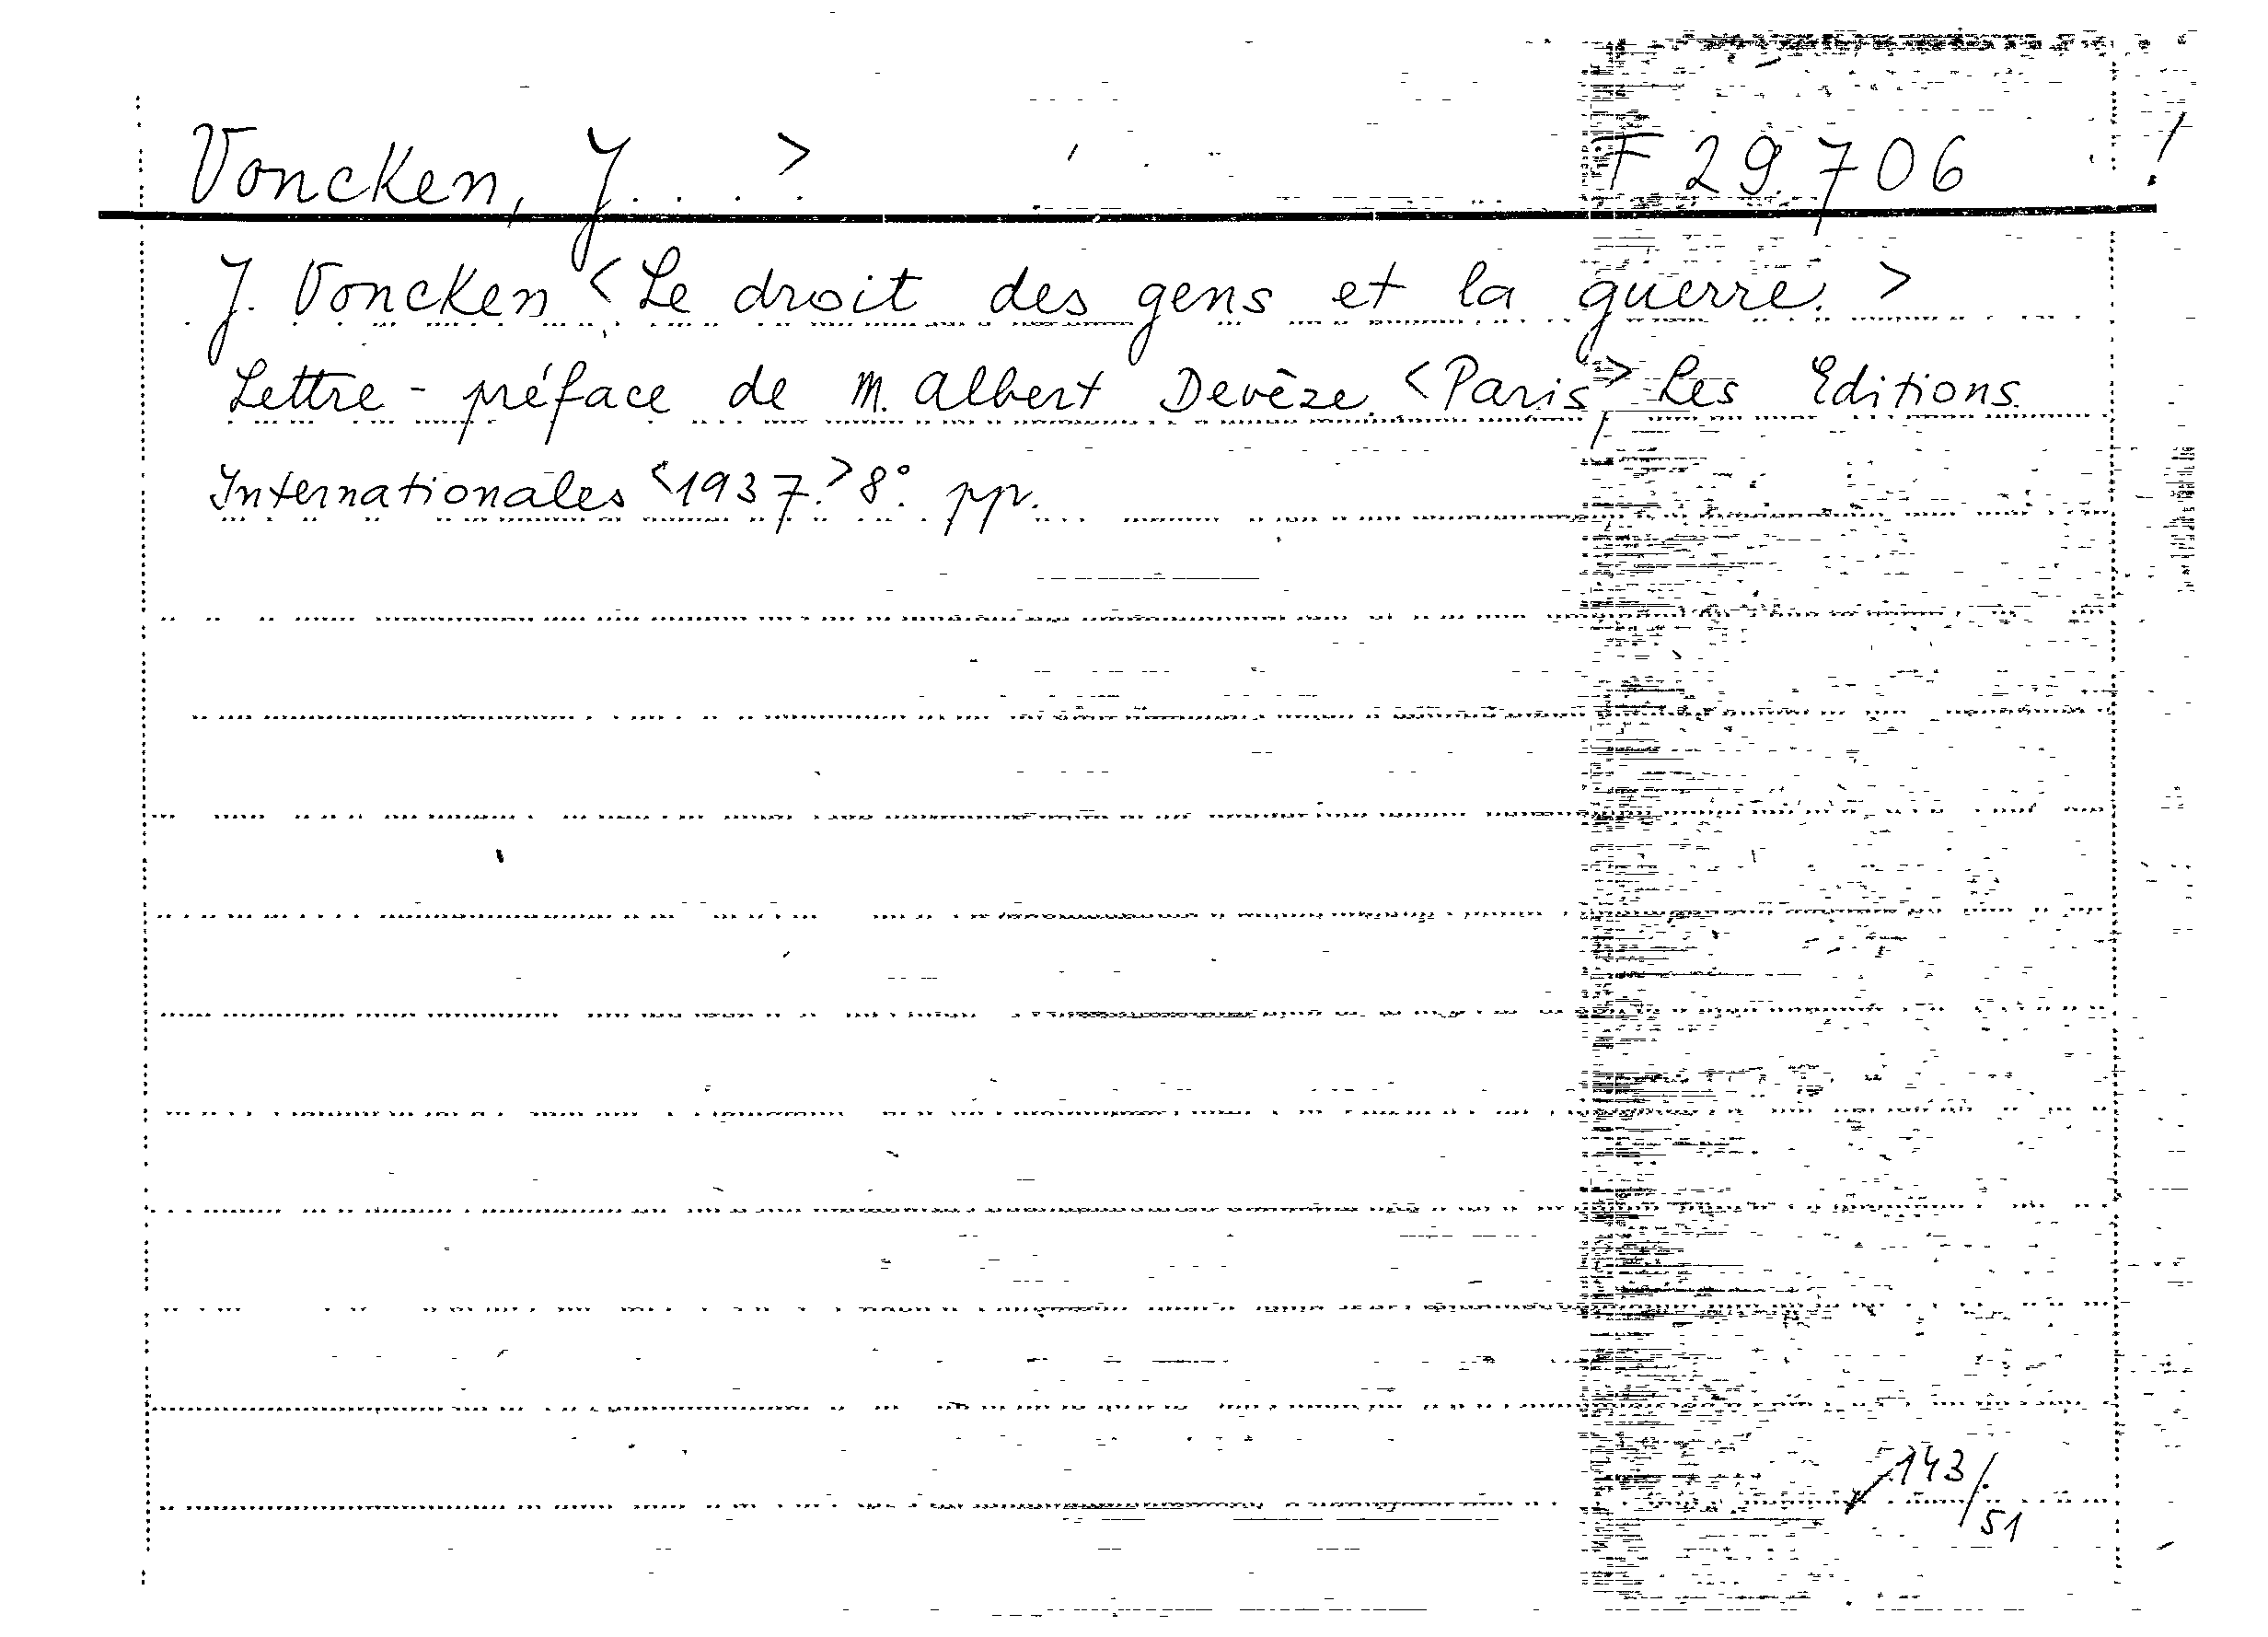 Voncken, J. . . . > F 29.706 !
J. Voncken <Le droit des gens et la guerre.>
Lettre-préface de M. Albert Devèze. <Paris>, Les Editions
Internationales <1937.> 8°. pp.
143/51